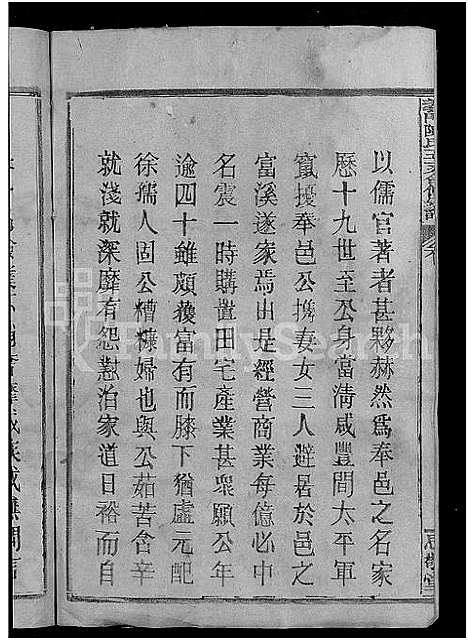 以儒官著者甚夥赫然為奉邑之名家
歷十九世至公身當清咸豐間太平軍
竄擾奉邑公攜妻女三人避居於邑之
富溪遂家焉由是經營商業每億必中
名震一時購置田宅產業甚衆願公年
逾四十雖頗獲富有而膝下猶虛元配
徐孺人固公糟糠婦也與公茹苦含辛
就淺就深靡有怨懟洎家道日裕而自
FamilySearch